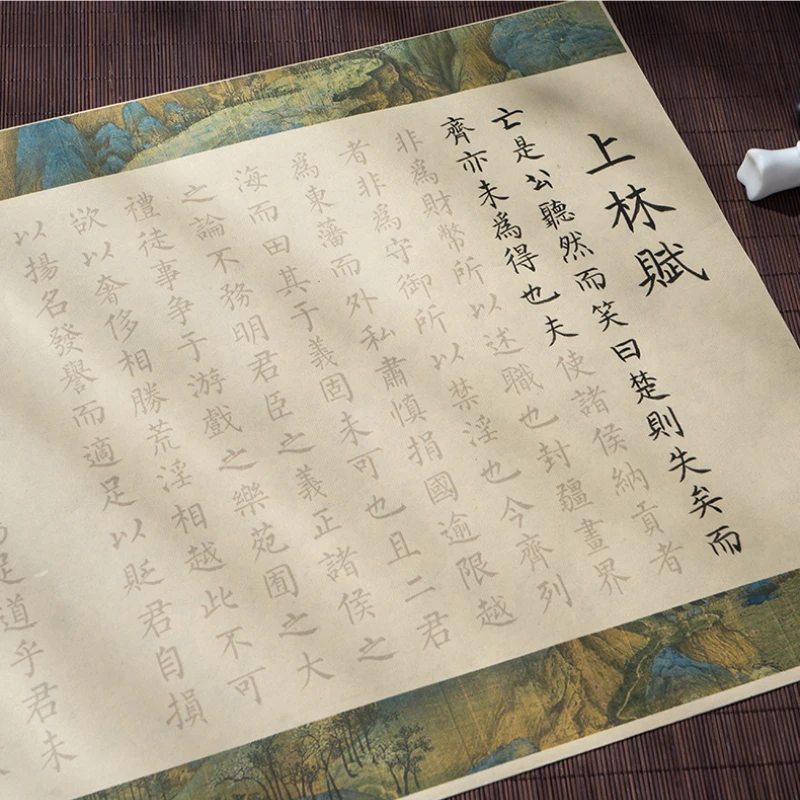 上林賦
亡是公聽然而笑曰楚則失矣而
齊亦未爲得也夫使諸侯納貢者
非爲財幣所以述職也封疆畫界
者非爲守御所以禁淫也今齊列
爲東藩而外私肅慎捐國逾限越
海而田其于義固未可也且二君
之論不務明君臣之義正諸侯之
禮徒事争于游戲之樂苑囿之大
欲以奢侈相勝荒淫相越此不可
以揚名發譽而適足以貶君自損
足道乎君未